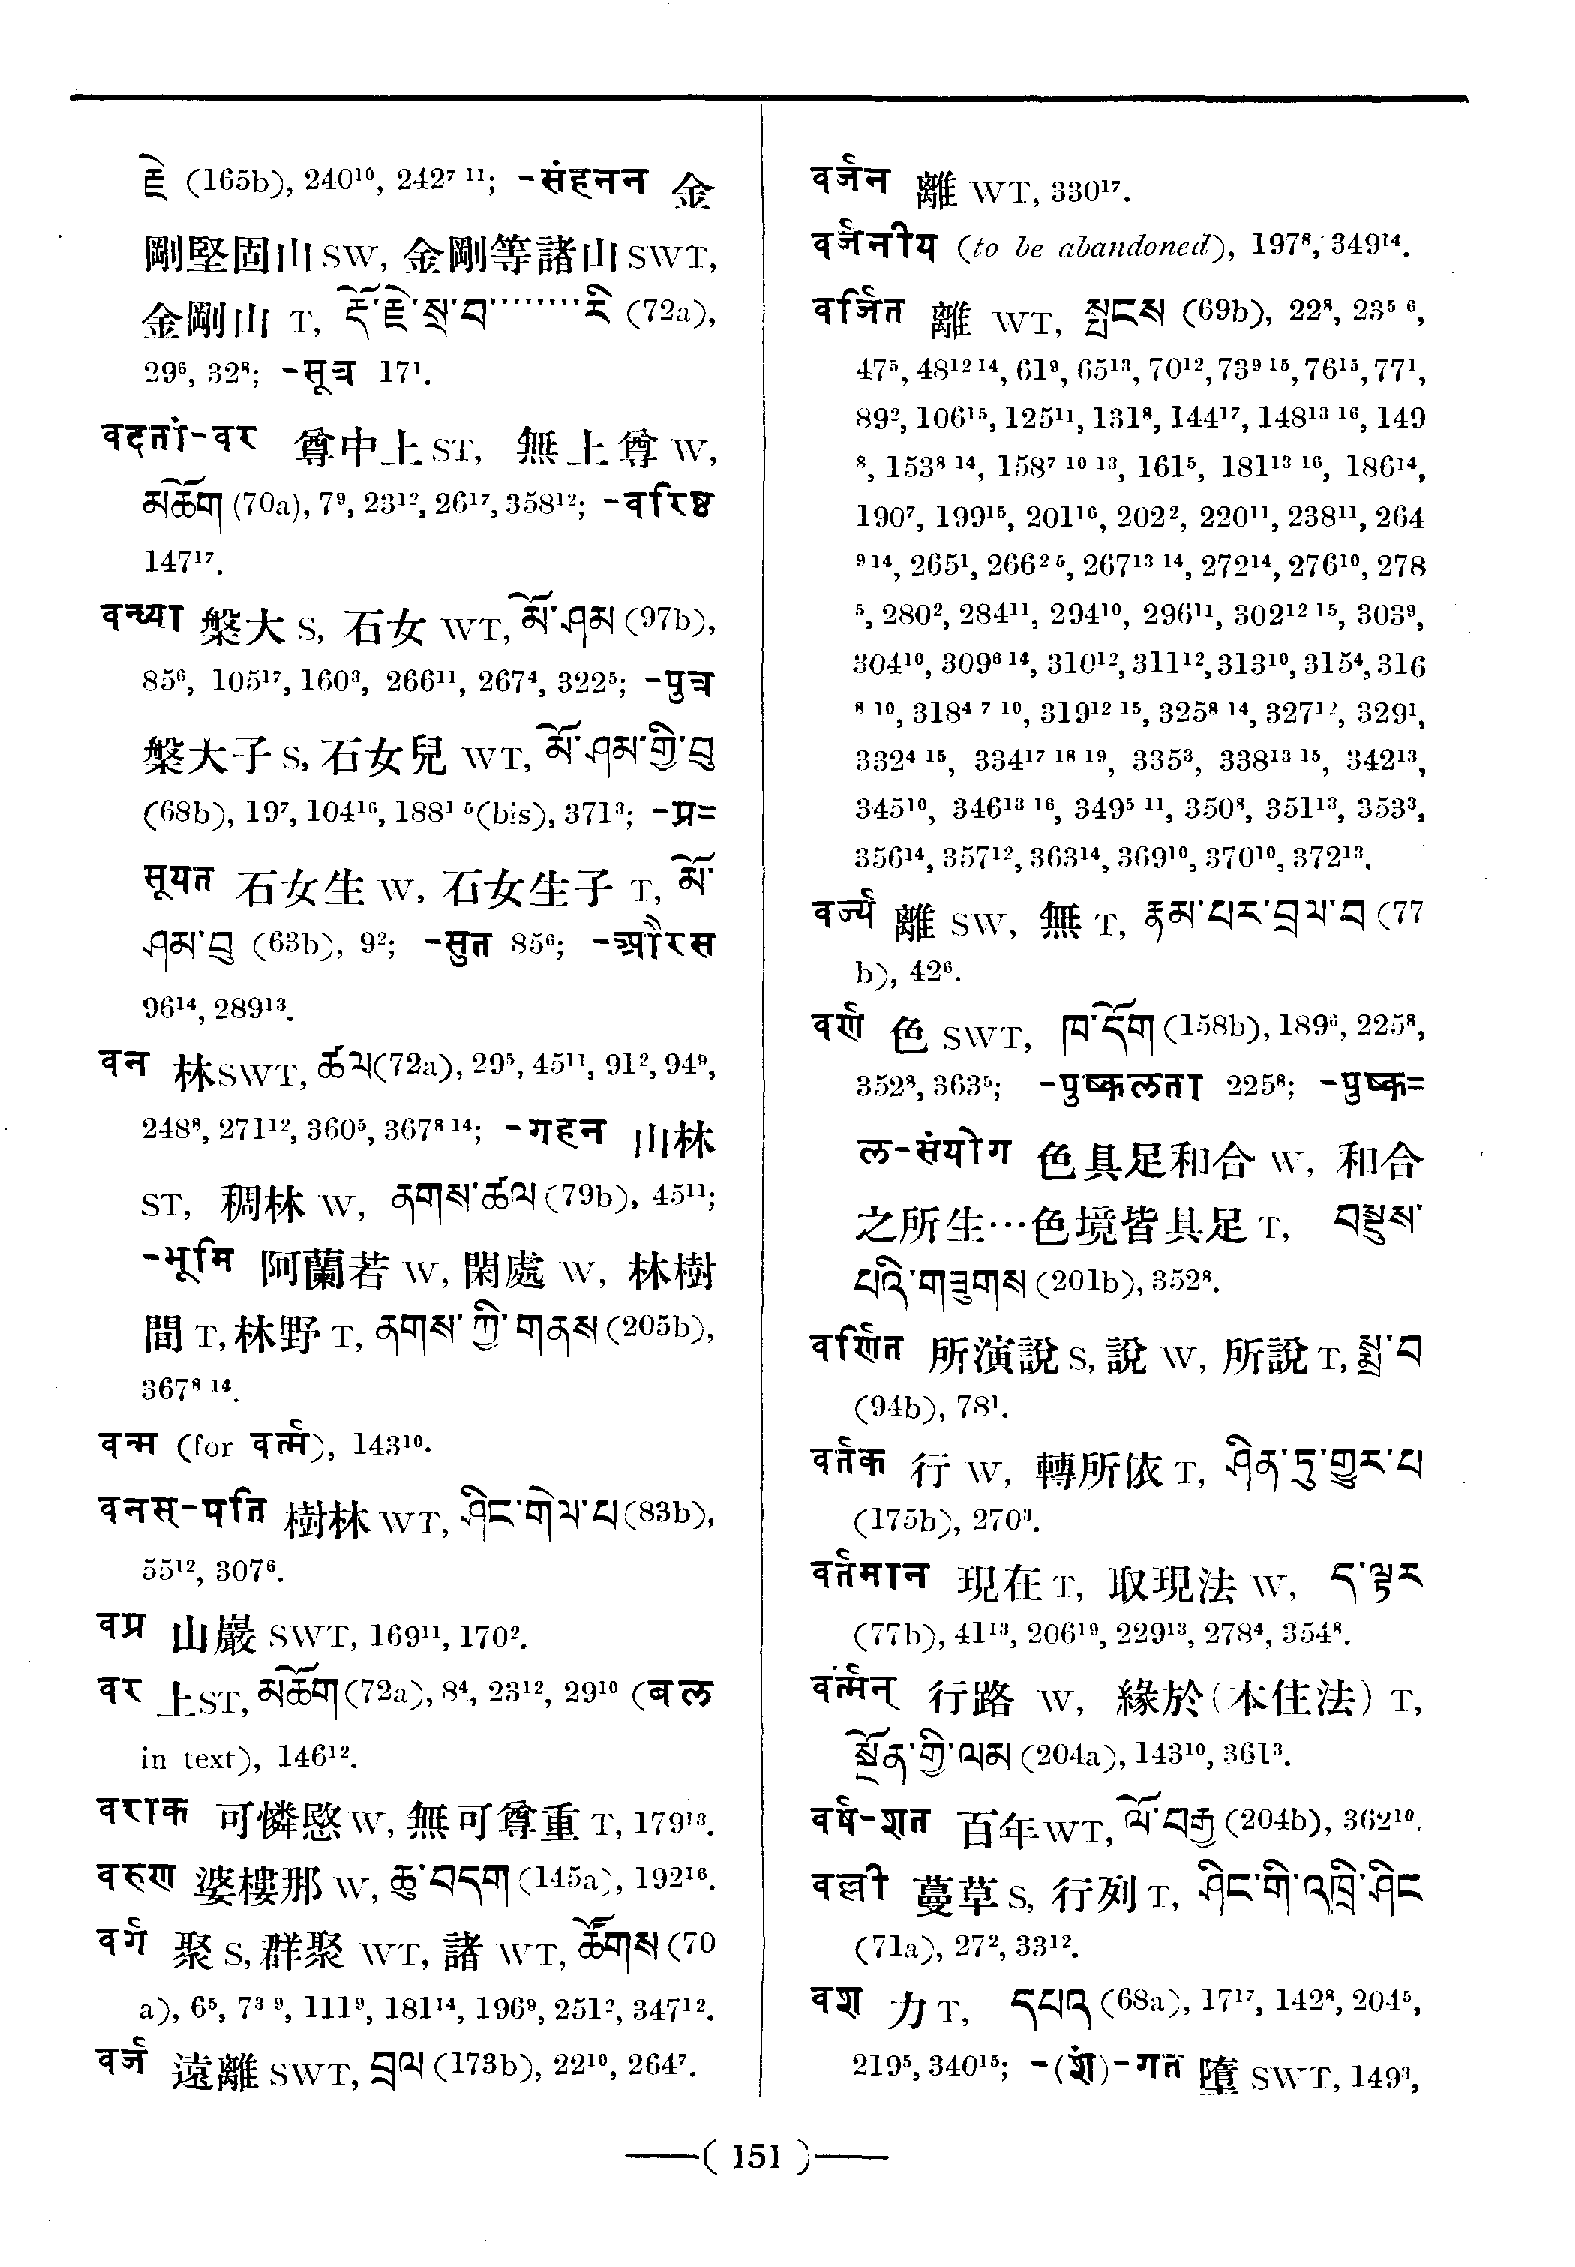 རྗེ (165b), 240¹⁰, 242⁷ ¹¹; -संहनन 金
剛堅固山 SW, 金剛等諸山 SWT,
金剛山 T, རྡོ་རྗེ་སྲ་བ·········རི (72a),
29⁶, 32⁸; -सूत्र 17¹.
वदतां-वर 尊中上 ST, 無上尊 W,
མཆོག (70a), 7⁹, 23¹², 26¹⁷, 358¹²; -वरिष्ठ
147¹⁷.
वन्ध्या 槃大 S, 石女 WT, མོ་ཤམ (97b),
85⁶, 105¹⁷, 160³, 266¹¹, 267⁴, 322⁵; -पुत्र
槃大子 S, 石女兒 WT, མོ་ཤམ་གྱི་བུ
(68b), 19⁷, 104¹⁶, 188¹ ⁵(bis), 371³; -प्र=
सूयत 石女生 W, 石女生子 T, མོ་
ཤམ་བུ (63b), 9²; -सुत 85⁶; -औरस
96¹⁴, 289¹³.
वन 林 SWT, ཚལ (72a), 29⁵, 45¹¹, 91², 94⁹,
248⁸, 271¹², 360⁵, 367⁸ ¹⁴; -गहन 山林
ST, 稠林 W, ནགས་ཚལ (79b), 45¹¹;
-भूमि 阿蘭若 W, 閑處 W, 林樹
間 T, 林野 T, ནགས་ཀྱི་གནས (205b),
367⁸ ¹⁴.
वन्म (for वर्त्म), 143¹⁰.
वनस्-पति 樹林 WT, ཤིང་གེལ་པ (83b),
55¹², 307⁶.
वप्र 山巖 SWT, 169¹¹, 170².
वर 上 ST, མཆོག (72a), 8⁴, 23¹², 29¹⁰ (बल
in text), 146¹².
वराक 可憐愍 W, 無可尊重 T, 179¹³.
वरुण 婆樓那 W, ཆུ་བདག (145a), 192¹⁶.
वर्ग 聚 S, 群聚 WT, 諸 WT, ཚོགས (70
a), 6⁵, 7³ ⁹, 111⁹, 181¹⁴, 196⁹, 251², 347¹².
वर्ज 遠離 SWT, བྲལ (173b), 22¹⁰, 264⁷.
वर्जन 離 WT, 330¹⁷.
वर्जनीय (to be abandoned), 197⁸, 349¹⁴.
वर्जित 離 WT, སྤངས (69b), 22⁸, 23⁵ ⁶,
47⁵, 48¹² ¹⁴, 61⁹, 65¹³, 70¹², 73⁹ ¹⁵, 76¹⁵, 77¹,
89², 106¹⁵, 125¹¹, 131⁸, 144¹⁷, 148¹³ ¹⁶, 149
⁸, 153⁸ ¹⁴, 158⁷ ¹⁰ ¹³, 161⁵, 181¹³ ¹⁶, 186¹⁴,
190⁷, 199¹⁵, 201¹⁶, 202², 220¹¹, 238¹¹, 264
⁹ ¹⁴, 265¹, 266² ⁵, 267¹³ ¹⁴, 272¹⁴, 276¹⁰, 278
⁵, 280², 284¹¹, 294¹⁰, 296¹¹, 302¹² ¹⁵, 303⁹,
304¹⁰, 309⁶ ¹⁴, 310¹², 311¹², 313¹⁰, 315⁴, 316
⁸ ¹⁰, 318⁴ ⁷ ¹⁰, 319¹² ¹⁵, 325⁸ ¹⁴, 327¹², 329¹,
332⁴ ¹⁵, 334¹⁷ ¹⁸ ¹⁹, 335³, 338¹³ ¹⁵, 342¹³,
345¹⁰, 346¹³ ¹⁶, 349⁵ ¹¹, 350⁸, 351¹³, 353³,
356¹⁴, 357¹², 363¹⁴, 369¹⁰, 370¹⁰, 372¹³.
वर्ज्य 離 SW, 無 T, རྣམ་པར་བྲལ་བ (77
b), 42⁶.
वर्ण 色 SWT, ཁ་དོག (158b), 189⁶, 225⁸,
352⁸, 363⁵; -पुष्कलता 225⁸; -पुष्क=
ल-संयोग 色具足和合 W, 和合
之所生···色境皆具足 T, བསྡུས་
པའི་གཟུགས (201b), 352⁸.
वर्णित 所演說 S, 說 W, 所說 T, སྨྲ་བ
(94b), 78¹.
वर्तक 行 W, 轉所依 T, ཤིན་ཏུ་གྱུར་པ
(175b), 270³.
वर्तमान 現在 T, 取現法 W, ད་ལྟར
(77b), 41¹³, 206¹⁹, 229¹³, 278⁴, 354⁸.
वर्त्मन् 行路 W, 緣於(本住法) T,
སྔོན་གྱི་ལམ (204a), 143¹⁰, 361³.
वर्ष-शत 百年 WT, ལོ་བརྒྱ (204b), 362¹⁰.
वल्ली 蔓草 S, 行列 T, ཤིང་གི་འཁྲི་ཤིང
(71a), 27², 33¹².
वश 力 T, དཔའ (68a), 17¹⁷, 142⁸, 204⁵,
219⁵, 340¹⁵; -(शं)-गत 墮 SWT, 149³,
( 151 )